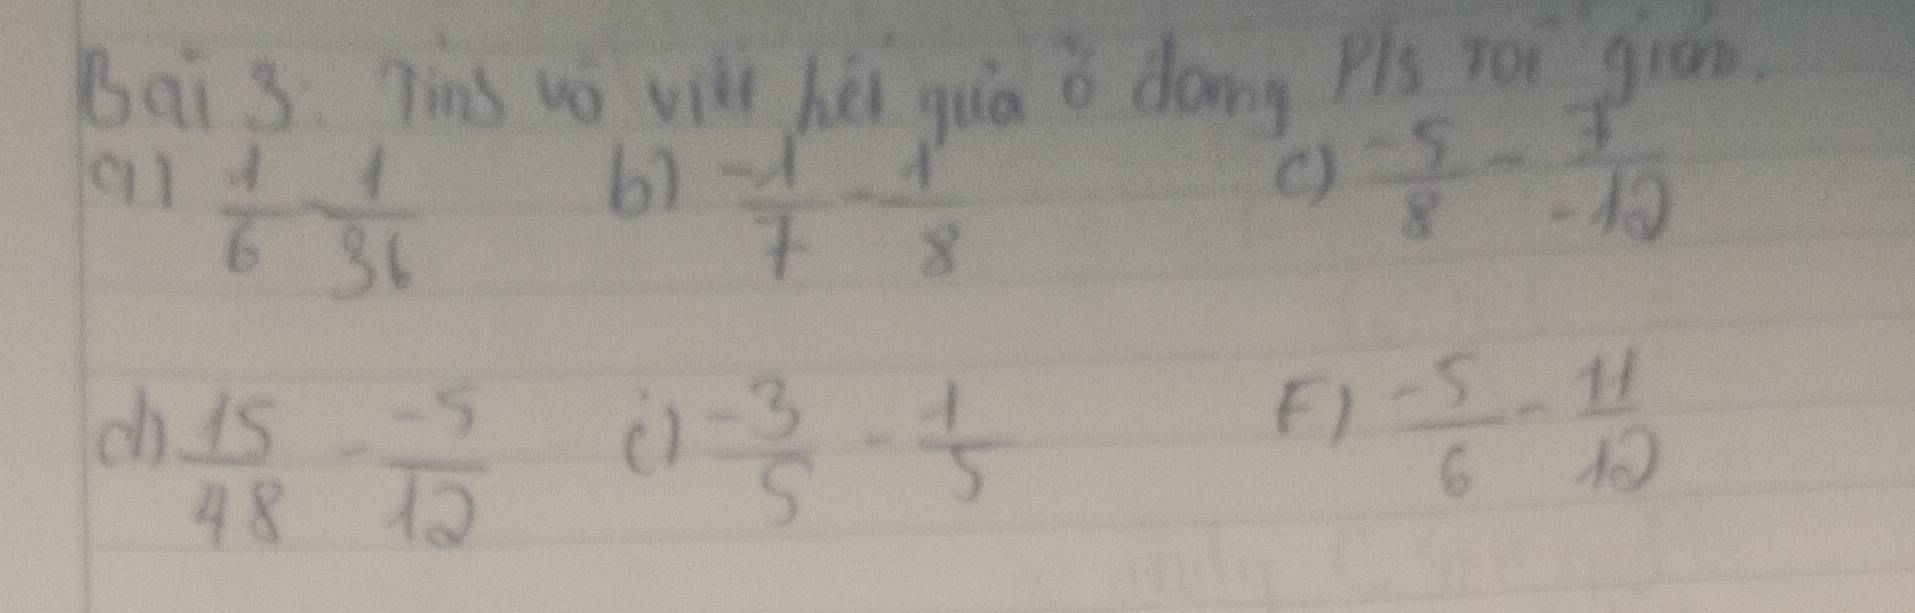 Bài 3: Tính và viết kết quả ở dạng p/s tối giản.
a) 1/6 - 1/36 b) -1/7 - 1/8 c) -5/8 - 7/-12
d) 15/48 - -5/12 e) -3/5 - 1/5 F) -5/6 - 11/12